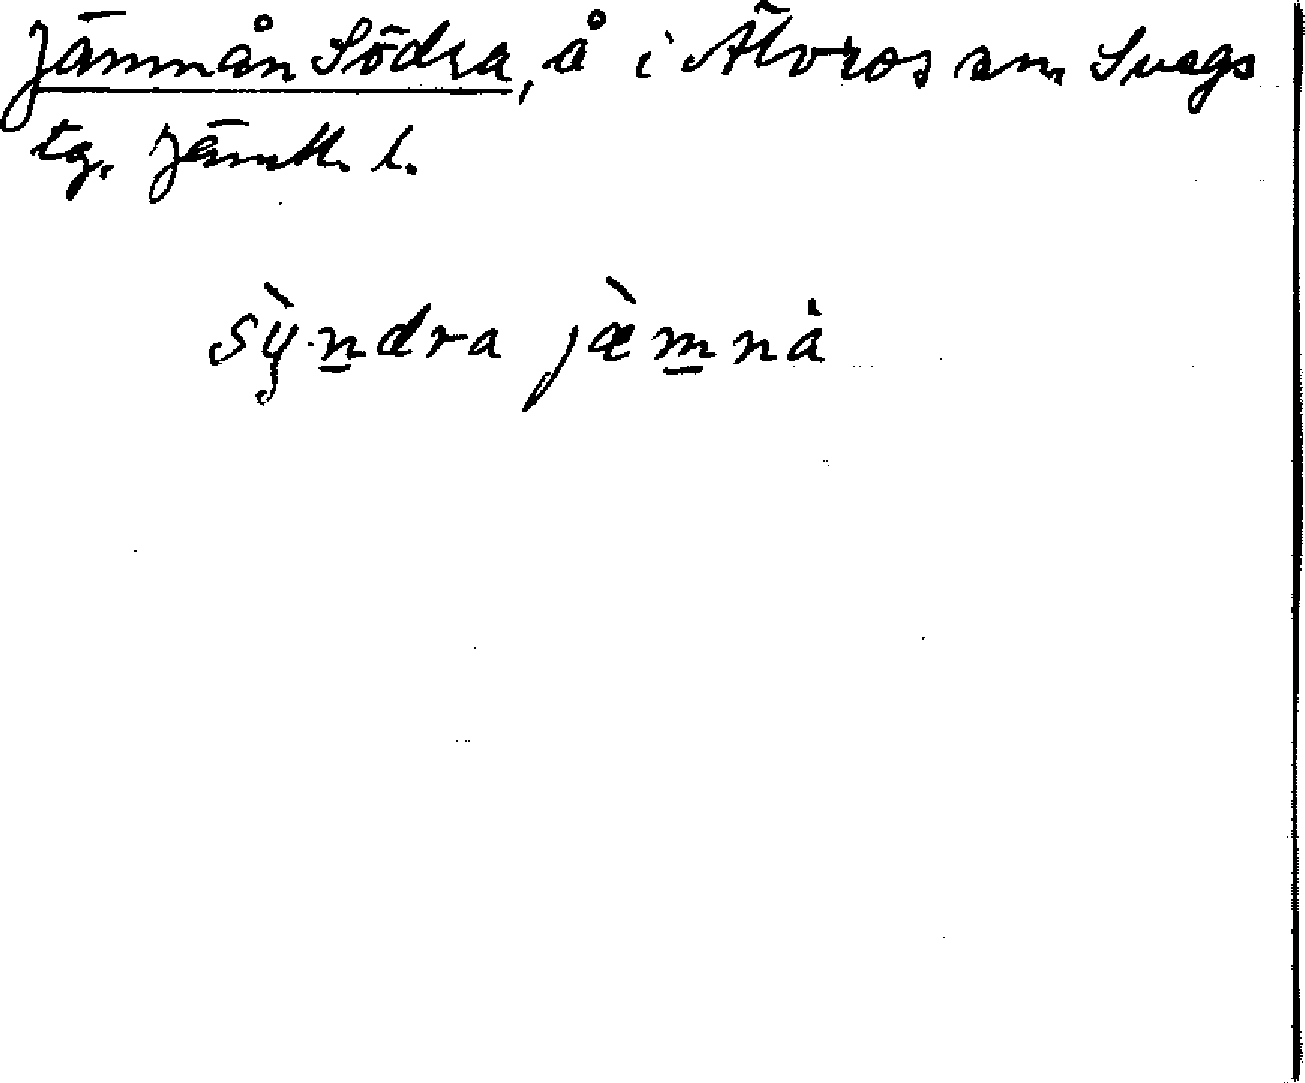 Jämnån Södra, å i Älvros sn, Svegs
tg. Jämtl. l.
sỳndra jæ̀mnå